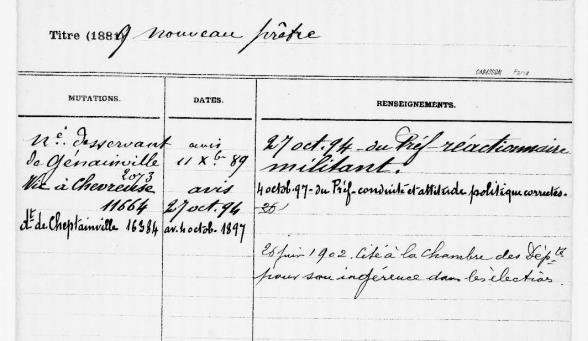 Titre (1889 nouveau prêtre
CARATSCH Paris
MUTATIONS. DATES. RENSEIGNEMENTS.
né. desservant avis 27 oct. 94 - du Préf - réactionnaire
de Génainville 11 Xbre 89 militant.
2073
Vic. à Chevreuse avis 4 octob. 97 - du Préf - conduite et attitude politique correctes -
11664 27 oct. 94
dt de Cheptainville 16384 av. 4 octob. 1897
26 juin 1902. Cité à la Chambre des Dép.tés
pour son ingérence dans les élections.